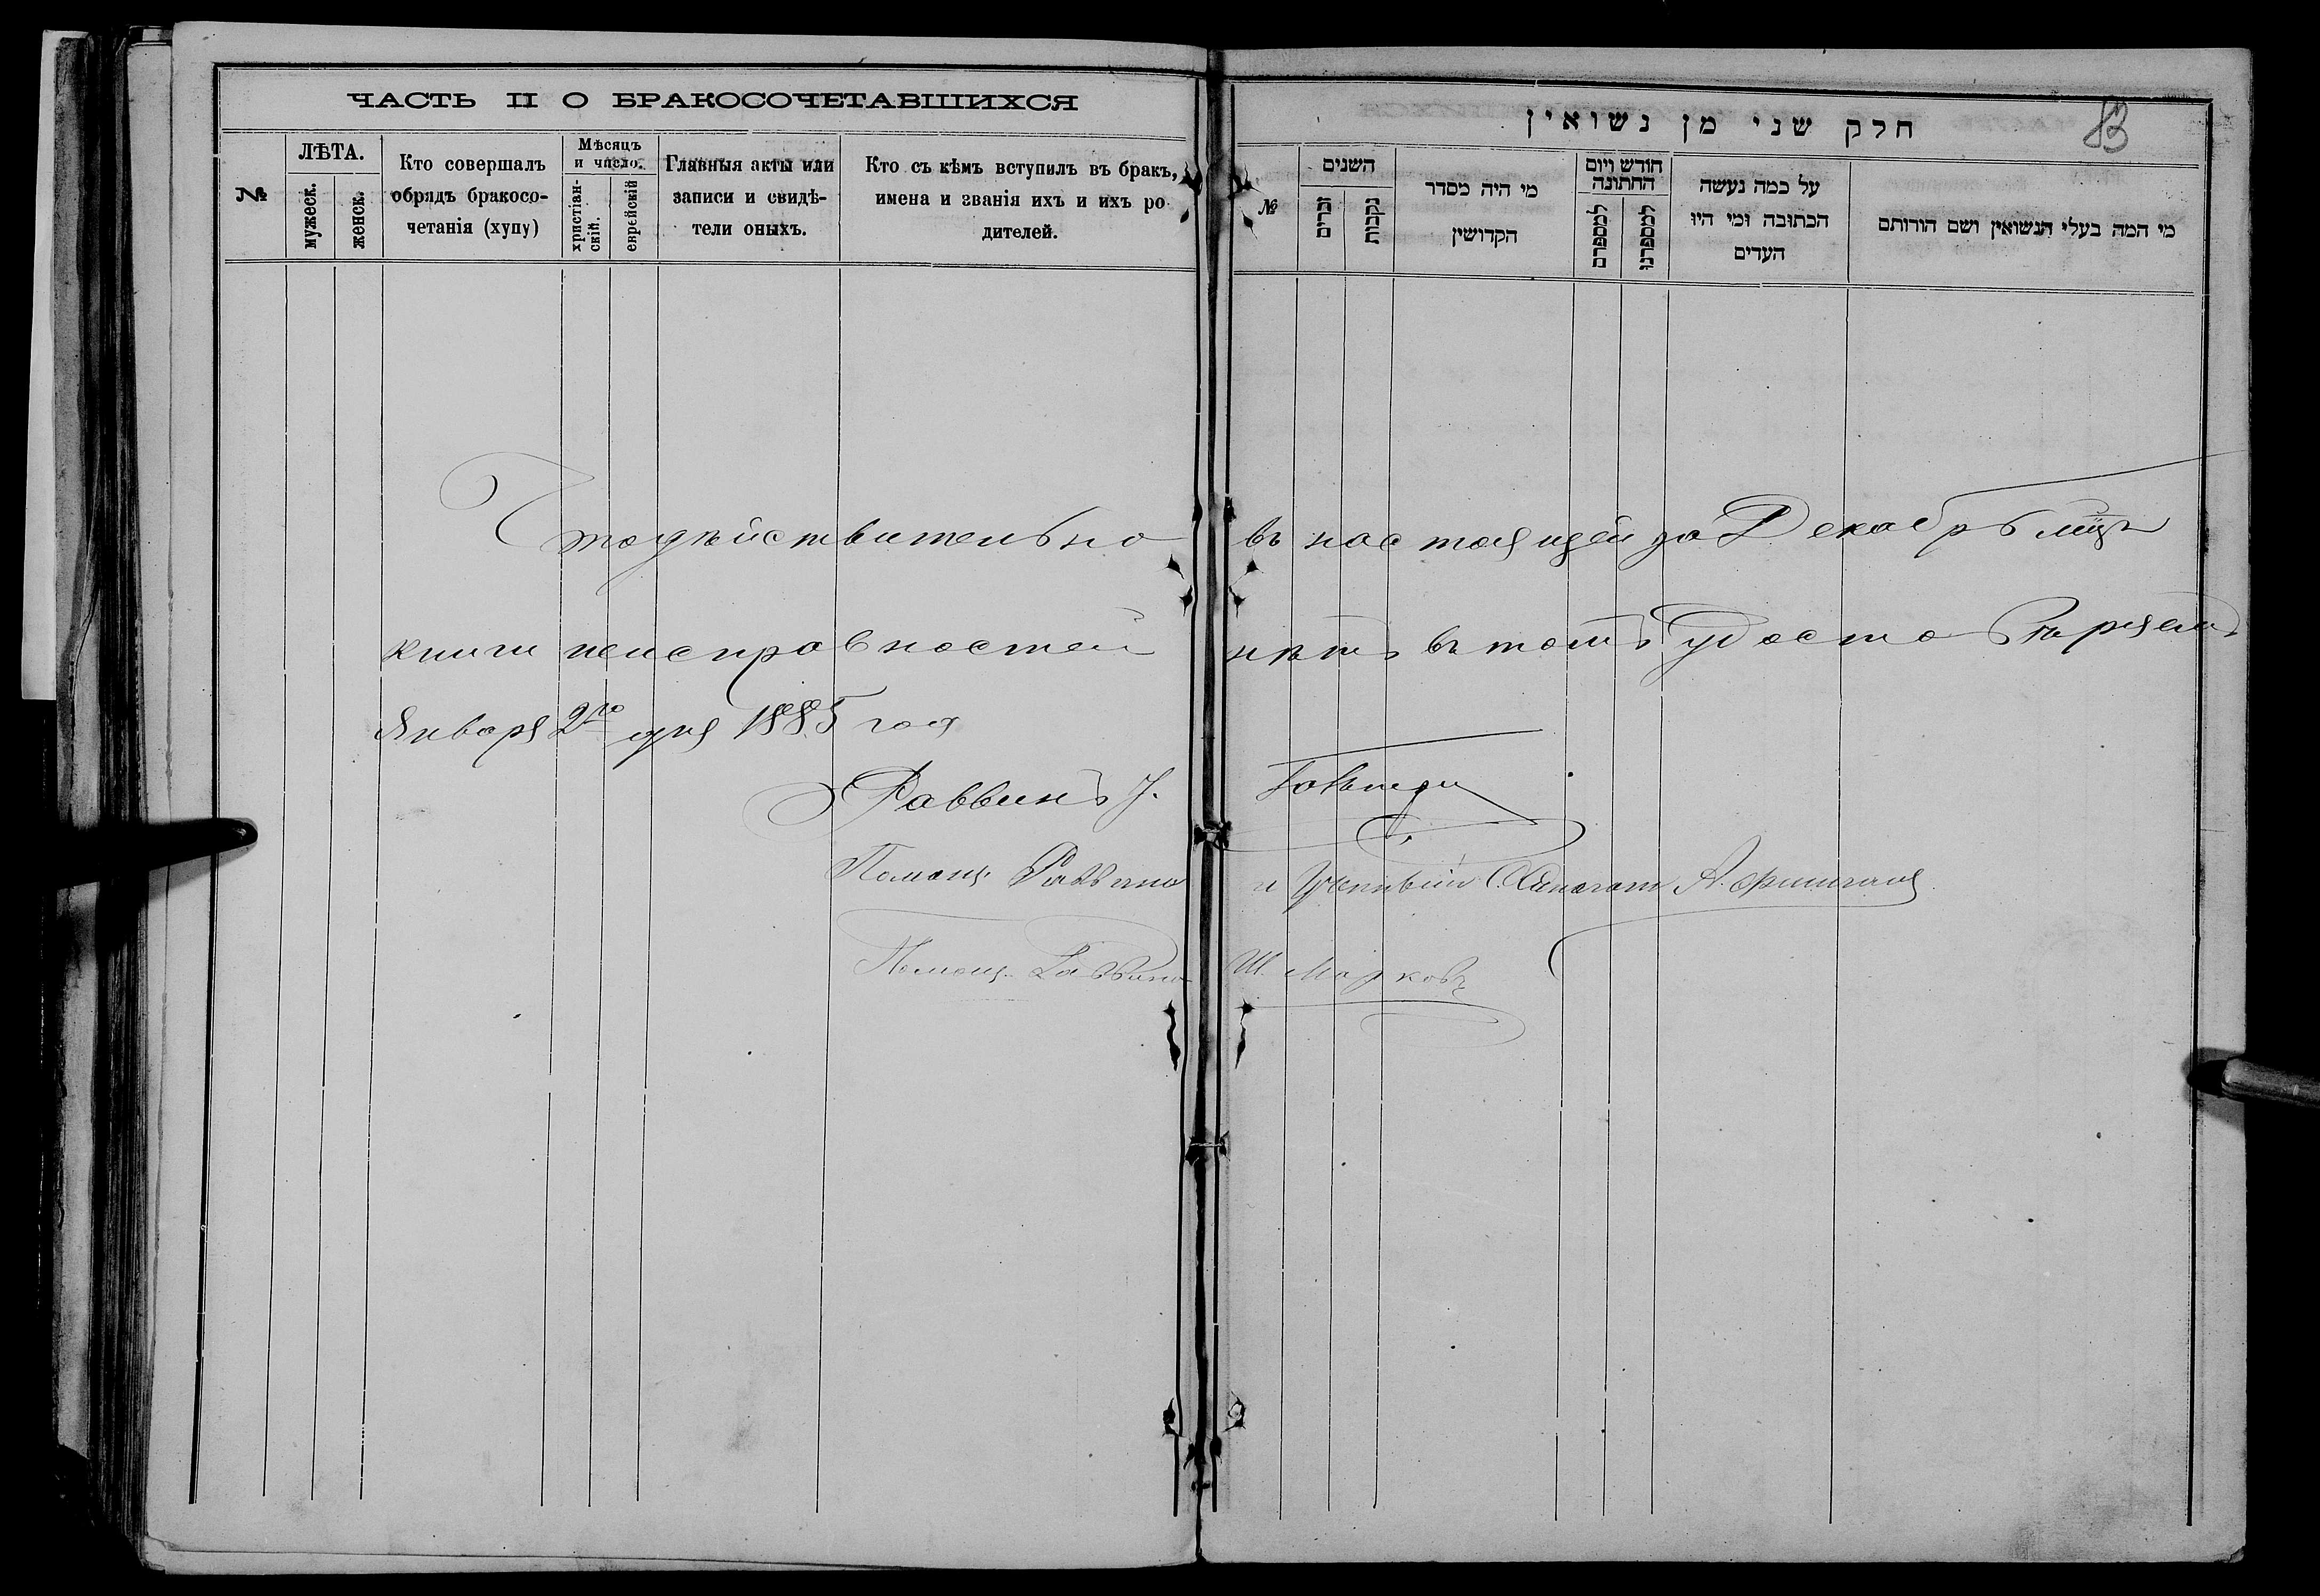 ЧАСТЬ II О БРАКОСОЧЕТАВШИХСЯ
№
ЛѢТА.
мужеск.
женск.
Кто совершалъ
обрядъ бракосо-
четанія (хупу)
Мѣсяцъ
и число.
христіан-
скій.
еврейскій
Главныя акты или
записи и свидѣ-
тели оныхъ.
Кто съ кѣмъ вступилъ въ бракъ,
имена и званія ихъ и ихъ ро
дителей.
חלק שני מן נשואין
83
№
השנים
זכרים
נקבות
מי היה מסדר
הקדושין
חודש ויום
החתונה
למספרם
למספרנו
על כמה נעשה
הכתובה ומי היו
העדים
מי המה בעלי הנשואין ושם הורותם
Что дѣйствительно въ настоящей за Декабрь мцъ
книги неисправностей нѣтъ въ томъ удостовѣряемъ
Января 2го дня 1885 года
Раввинъ
Помощ. Раввина и
Помощ. Раввина Ш. Марковъ